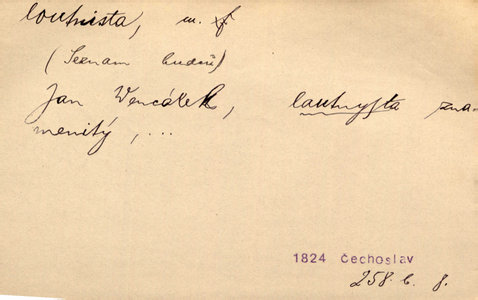 loutnista, m. f.
(Seznam hudeb.)
Jan Wencálek, lautnysta zna-
menitý, ...
1824 Čechoslav
258 b. 8.